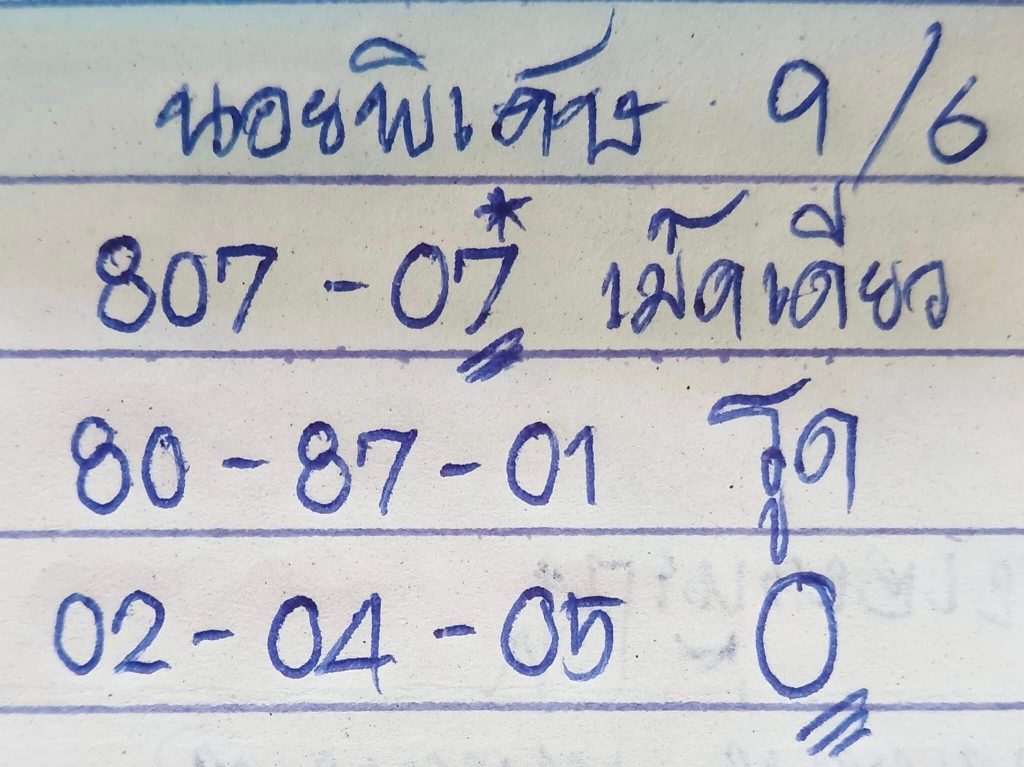 นอยพิเศษ 9/6
807 - 07* เม็ดเดียว
80 - 87 - 01 รูด
02 - 04 - 05 0